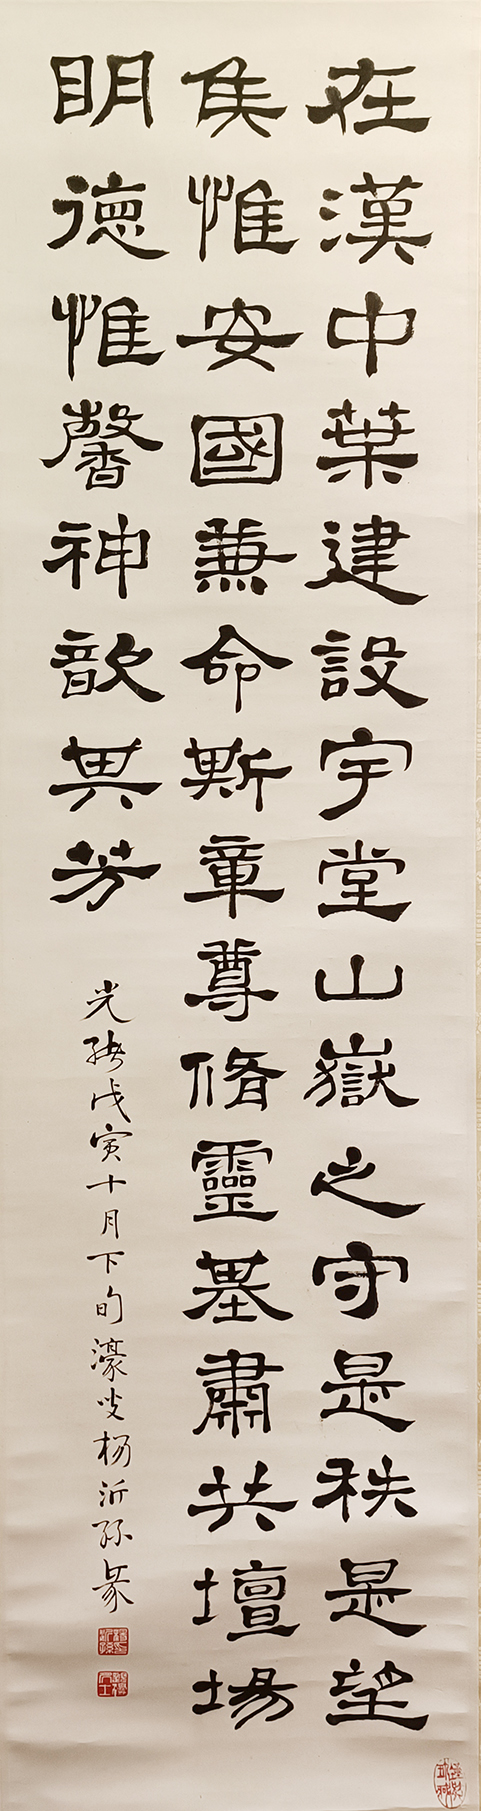 在漢中葉建設宇堂山嶽之守是秩是望
侯惟安國兼命斯章尊脩靈基肅共壇場
眀德惟馨神歆其芳
光緒戊寅十月下旬濠叟楊沂孫